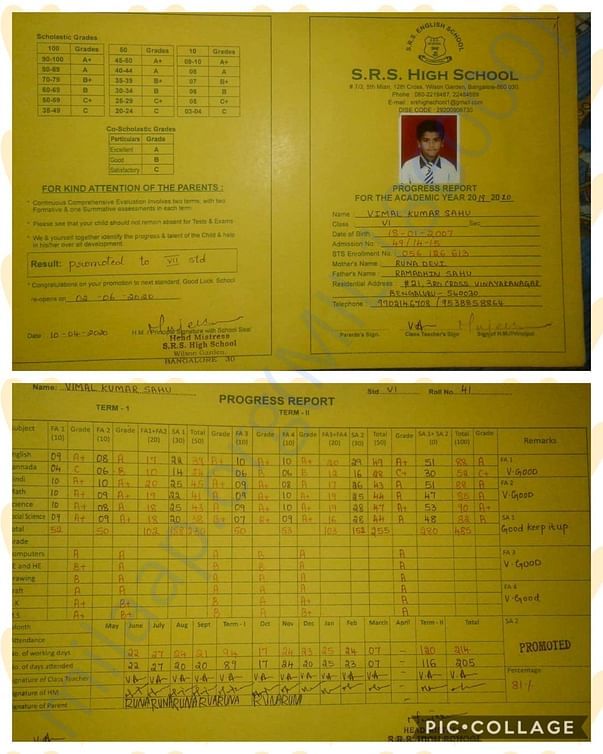 Scholastic Grades
100 Grades 50 Grades 10 Grades
90-100 A+ 45-50 A+ 09-10 A+
80-89 A 40-44 A 08 A
70-79 B+ 35-39 B+ 07 B+
60-69 B 30-34 B 06 B
50-59 C+ 25-29 C+ 05 C+
35-49 C 20-24 C 03-04 C
Co-Scholastic Grades
Particulars Grades
Excellent A
Good B
Satisfactory C
FOR KIND ATTENTION OF THE PARENTS :
* Continuous Comprehensive Evaluation involves two terms, with two
Formative & one Summative assessments in each term
* Please see that your child should not remain absent for Tests & Exams
* We & yourself together identify the progress & talent of the Child & help
in his/her over all development.
Result: promoted to VII std
* Congratulations on your promotion to next standard, Good Luck. School
re-opens on 02-06-2020
Date 10-04-2020
H.M. / Principal Signature with School Seal
Head Mistress
S.R.S. High School
Wilson Garden,
BANGALORE 30
S.R.S. ENGLISH SCHOOL
S.R.S. HIGH SCHOOL
# 7/3, 5th Main, 12th Cross, Wilson Garden, Bangalore-560 030
Phone : 080-2219487, 22484689
E-mail : srshighschool1@gmail.com
DISE CODE : 29200906730
PROGRESS REPORT
FOR THE ACADEMIC YEAR 2019 2020
Name VIMAL KUMAR SAHU
Class VI Sec
Date of Birth 18-01-2007
Admission No 49/14-15
STS Enrolling No 056 186 613
Mother's Name RUNA DEVI
Father's Name RAMADHIN SAHU
Residential Address #21, 3RD CROSS VINAYAKANAGAR
BENGALURU - 560030
Telephone 9702146708 / 9538858864
Parents's Sign. Class Teacher's Sign Sign of H.M./Principal
Name: VIMAL KUMAR SAHU Std VI Roll No. 41
PROGRESS REPORT
TERM - 1 TERM - II
Subject FA 1 (10) Grade FA 2 (10) Grade FA1+FA2 (20) SA 1 (30) Total (50) Grade FA 3 (10) Grade FA 4 (10) Grade FA3+FA4 (20) SA 2 (30) Total (50) Grade SA 1+ SA 2 Total (100) Grade Remarks
English 09 A+ 08 A 17 22 39 A+ 10 A+ 10 A+ 20 29 49 A+ 51 88 A
Kannada 04 C 06 B 10 14 24 06 B 06 B 12 16 28 C+ 30 52 C+
Hindi 10 A+ 10 A+ 20 25 45 A+ 09 A+ 08 A 17 26 43 A 51 88 A
Math 09 A+ 10 A+ 19 22 41 09 A+ 10 A+ 19 25 44 A 47 85 A
Science 10 A+ 08 A 18 25 43 09 A+ 10 A+ 19 28 47 A+ 53 A+
Social Science 09 A+ 09 A+ 18 20 38 07 B+ 09 A+ 16 28 44 A 48 82 A
Total 52 50 102 50 53 103 152 255 280 485
Grade
Computers
PE and HE
Drawing
Craft
Month May June July Aug Sept Term - I Oct Nov Dec Jan Feb March April Term - II Total
Attendance
No. of working days 22 27 24 21 94 17 24 23 25 24 07 - 120 214
No. of days attended 22 27 20 20 89 17 24 20 25 23 07 - 116 205
Signature of Class Teacher
Signature of HM
Signature of Parent RUNA RUNA RUNA RUNA RUNA
FA 1
V.GOOD
FA 2
V.GOOD
SA 1
Good keep it up
FA 3
V.GOOD
FA 4
V.Good
SA 2
PROMOTED
Percentage
81%
PIC•COLLAGE